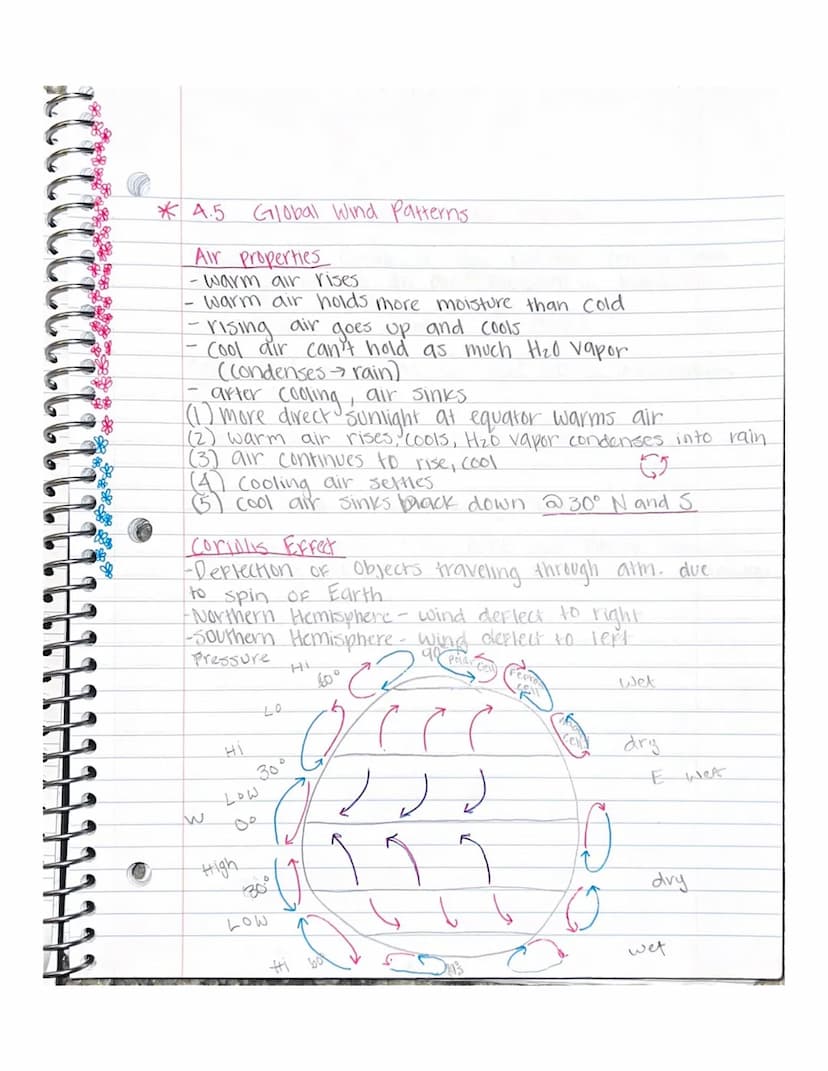 * 4.5 Global Wind Patterns
Air properties
- warm air rises
- warm air holds more moisture than cold
- rising air goes up and cools
- cool air can't hold as much H2O vapor
(condenses → rain)
- after cooling, air sinks
(1) more direct sunlight at equator warms air
(2) warm air rises, cools, H2O vapor condenses into rain
(3) air continues to rise, cool
(4) cooling air settles
(5) cool air sinks back down @ 30° N and S
Coriolis Effect
- Deflection of objects traveling through atm. due
to spin of Earth
- Northern Hemisphere - wind deflect to right
- Southern Hemisphere - wind deflect to left
Pressure
Hi
60°
90
Polar cell
cell
wet
Lo
cell
Hi
dry
30°
E wet
Low
W 0°
High
30°
dry
Low
wet
Hi 60